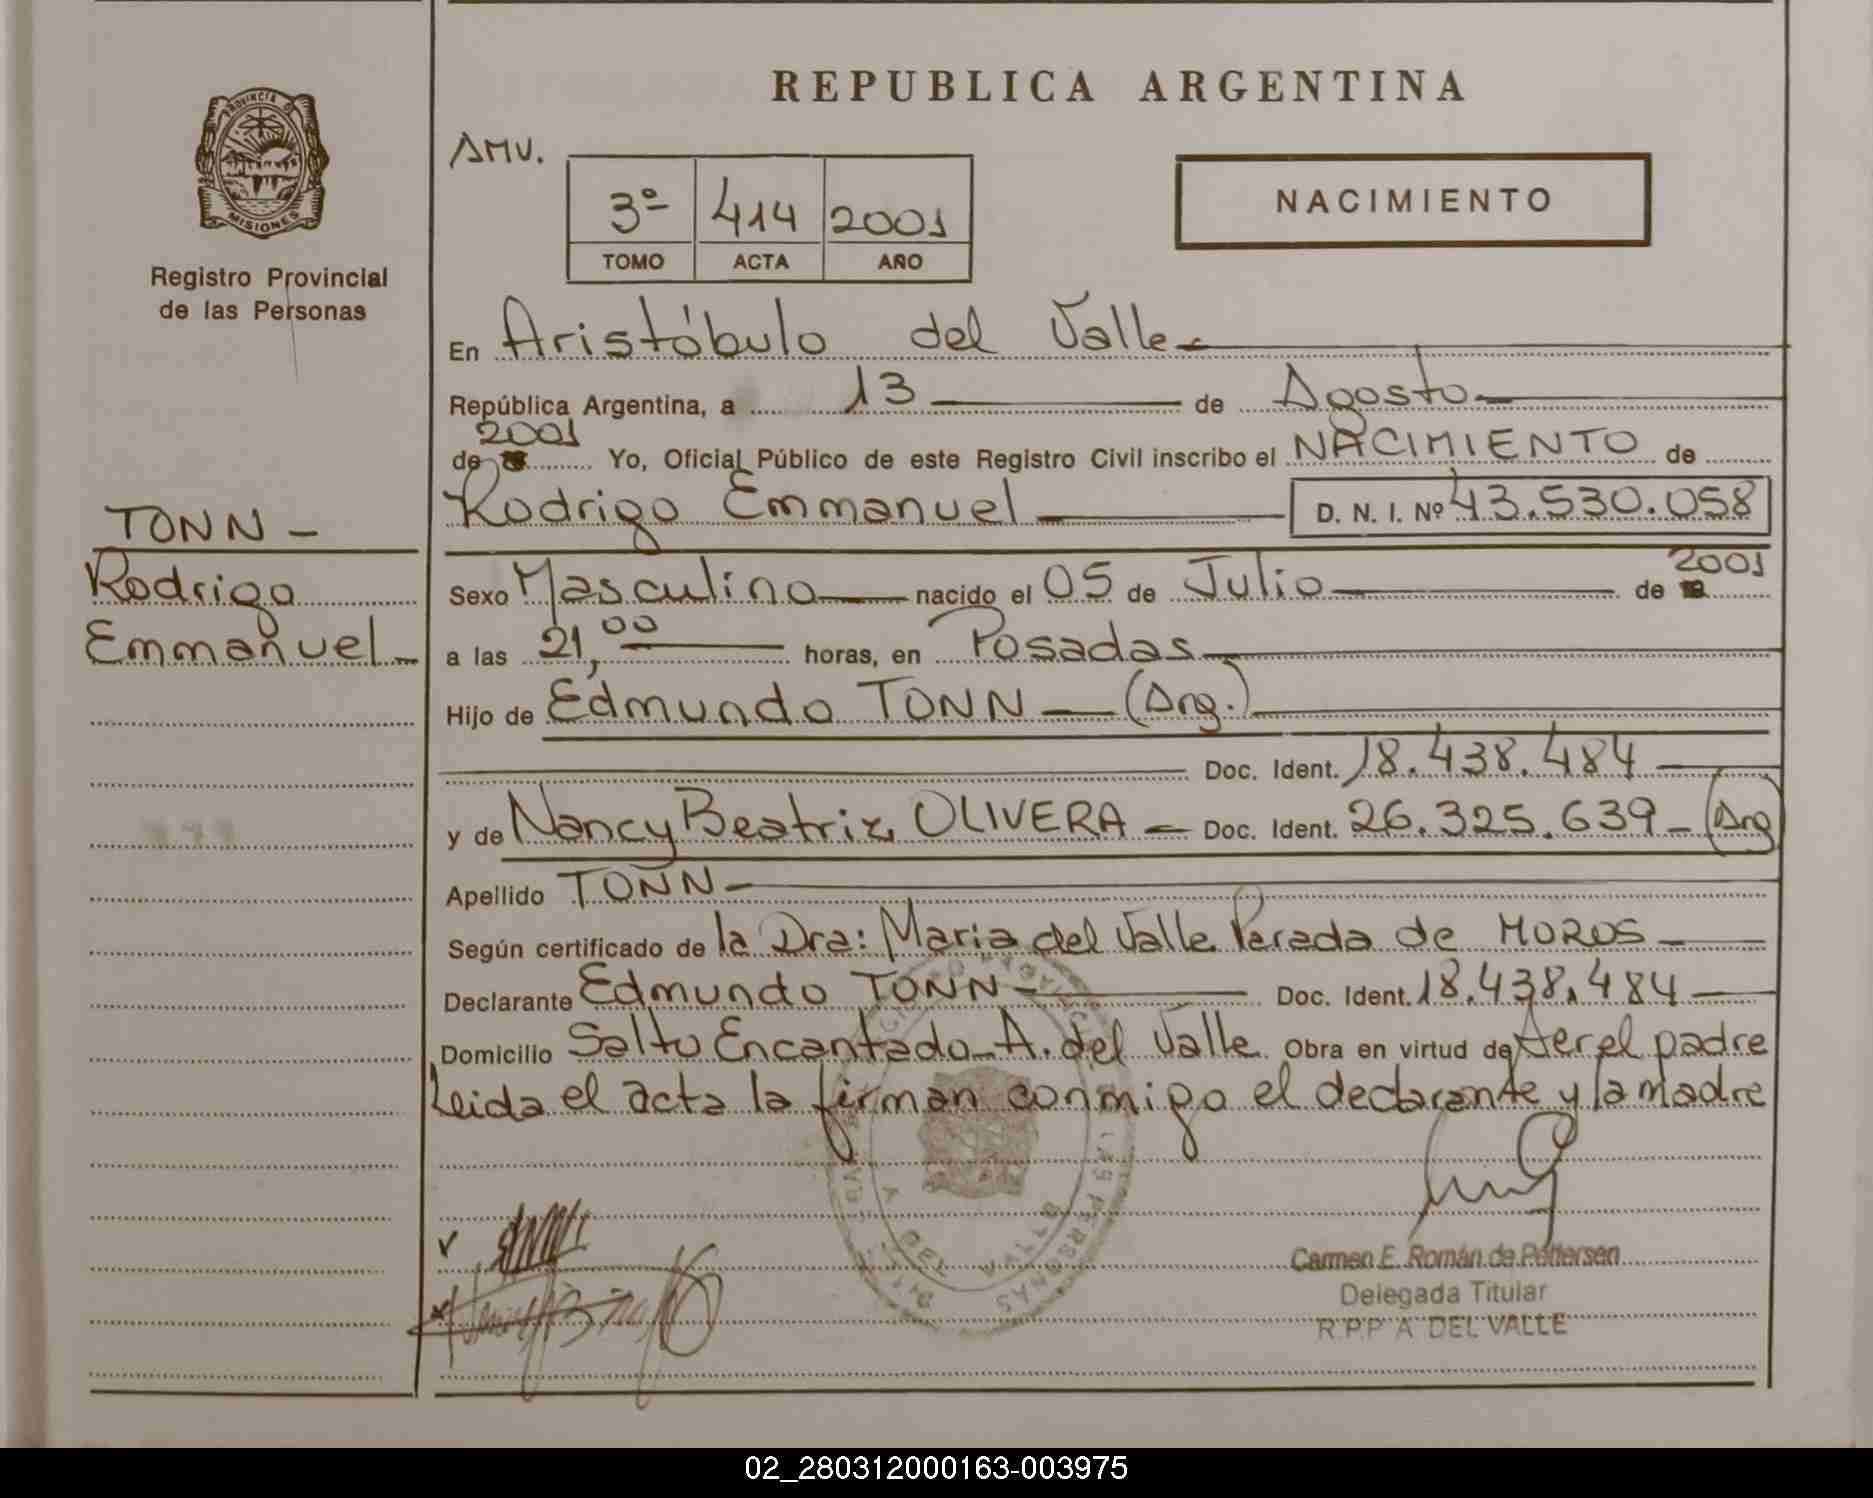 REPUBLICA ARGENTINA
PROVINCIA D
MISIONES
Registro Provincial
de las Personas
AMV.
3º 414 2001
TOMO ACTA AÑO
NACIMIENTO
En Aristóbulo del Valle
República Argentina, a 13 de Agosto
2001
de Yo, Oficial Público de este Registro Civil inscribo el NACIMIENTO de
Rodrigo Emmanuel D. N. I. Nº 43.530.058
TONN
Rodrigo
Emmanuel
2001
Sexo Masculino nacido el 05 de Julio de
a las 21,00 horas, en Posadas
Hijo de Edmundo TONN (Arg.)
Doc. Ident. 18.438.484
y de Nancy Beatriz OLIVERA Doc. Ident. 26.325.639 (Arg)
Apellido TONN
Según certificado de la Dra: Maria del Valle Parada de MOROS
Declarante Edmundo TONN Doc. Ident. 18.438.484
Domicilio Salto Encantado A. del Valle Obra en virtud de ser el padre
Leida el acta la firman conmigo el declarante y la madre
LAS PERSONAS
A DEL VALLE
Carmen E. Román de Pettersen
Delegada Titular
R.P.P A DEL VALLE
02_280312000163-003975